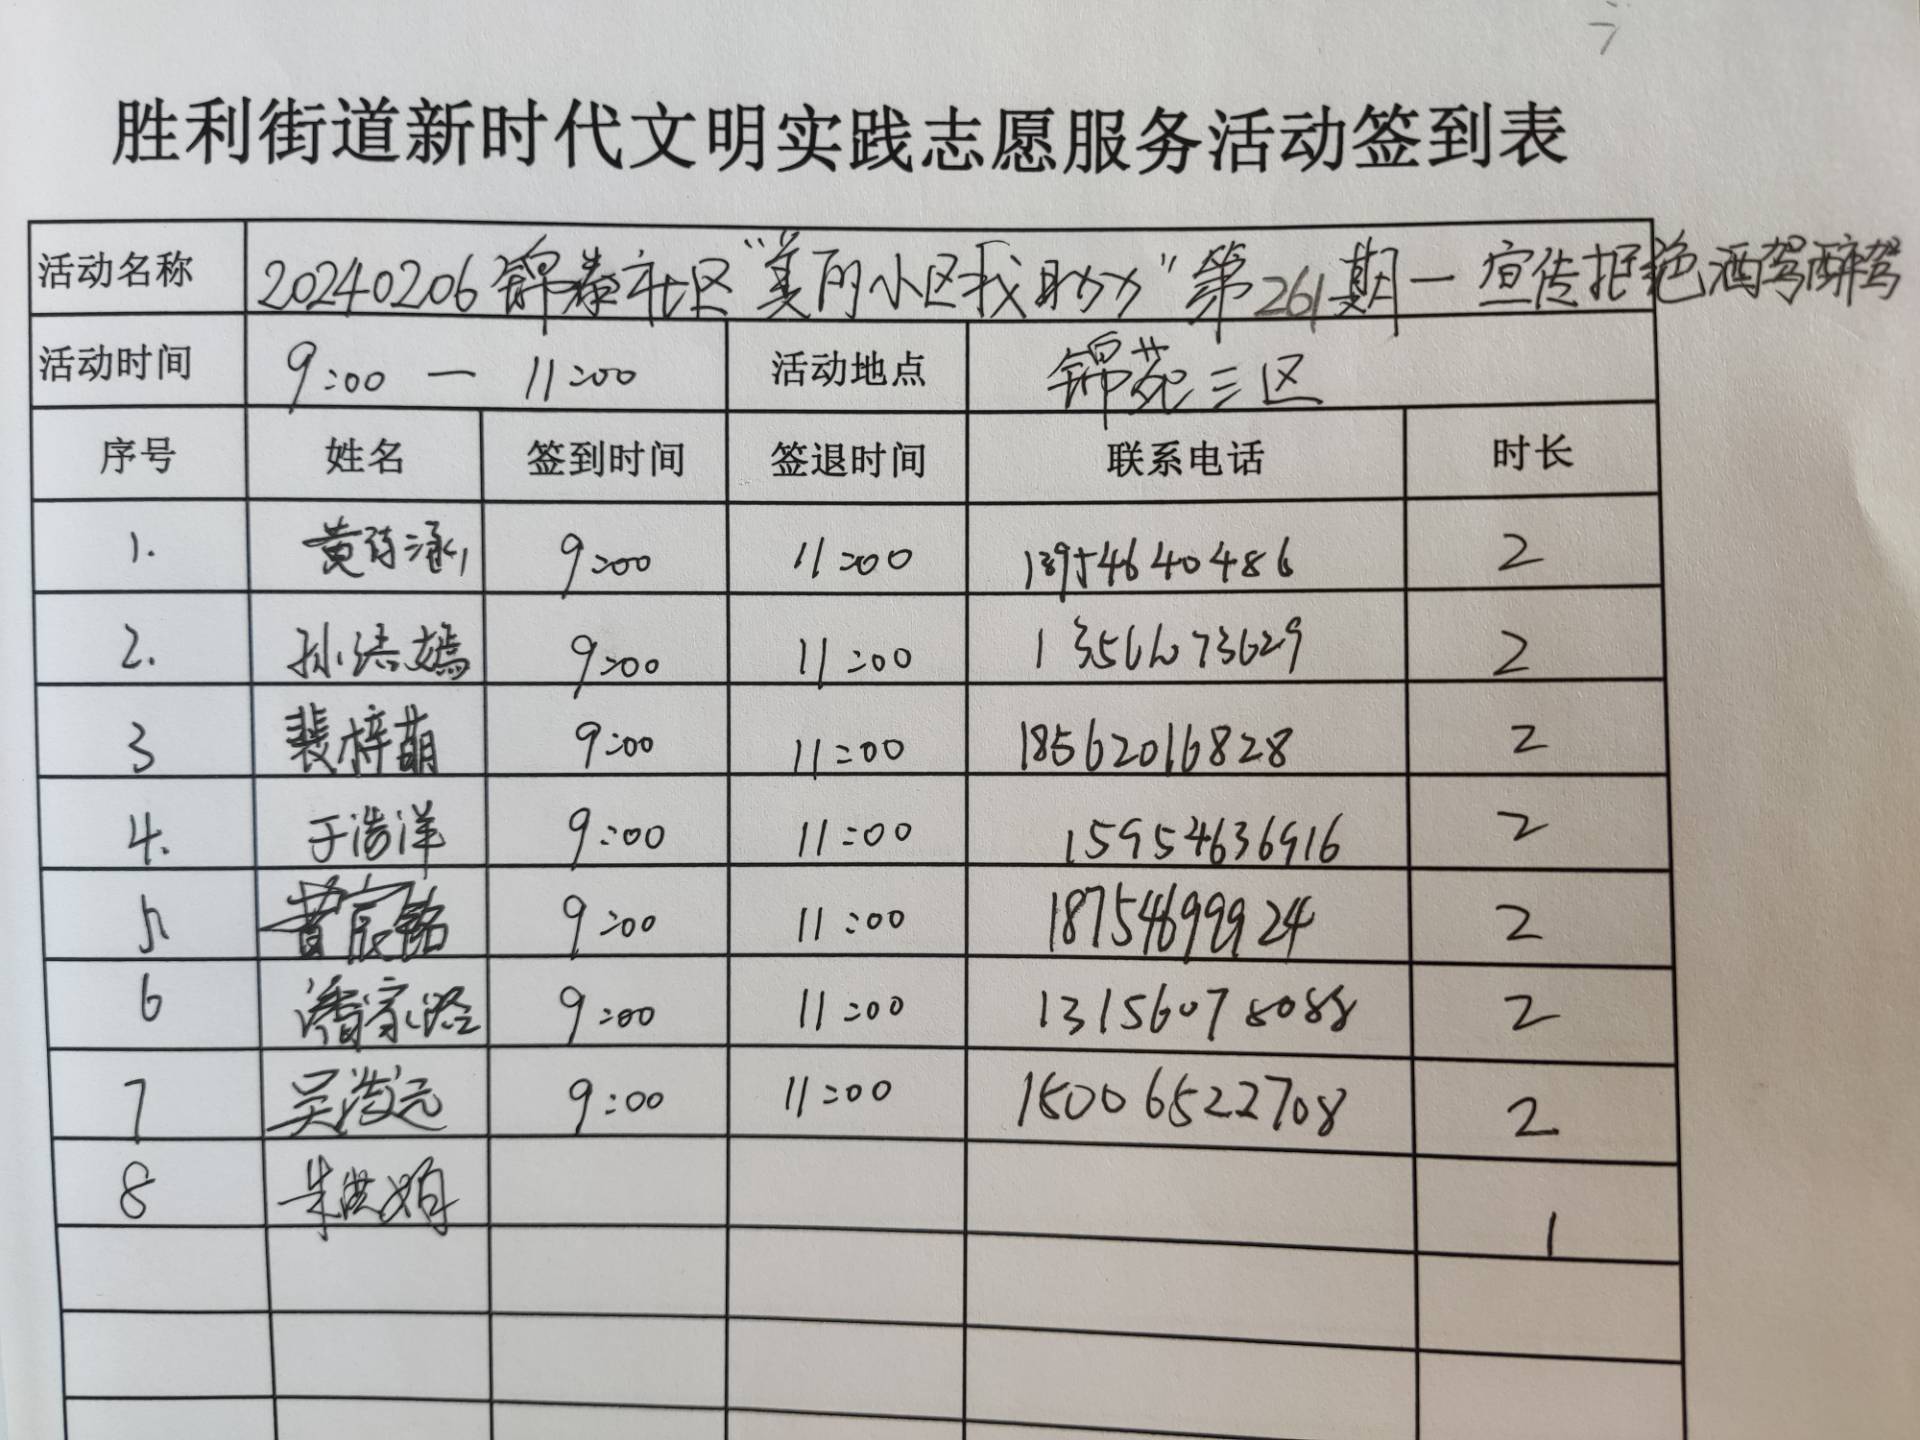 胜利街道新时代文明实践志愿服务活动签到表
活动名称 20240206锦泰社区“美丽小区我助力”第261期一宣传拒绝酒驾醉驾
活动时间 9:00 — 11:00 活动地点 锦苑三区
序号 姓名 签到时间 签退时间 联系电话 时长
1. 黄诗涵 9:00 11:00 13954640486 2
2. 孙洁嫣 9:00 11:00 2
3 裴梓萌 9:00 11:00 18562016828 2
4. 于浩洋 9:00 11:00 15954636916 2
5 曹宸铭 9:00 11:00 18754699924 2
6 潘家 9:00 11:00 13156078088 2
7 吴浚元 9:00 11:00 15006522708 2
8 朱 1